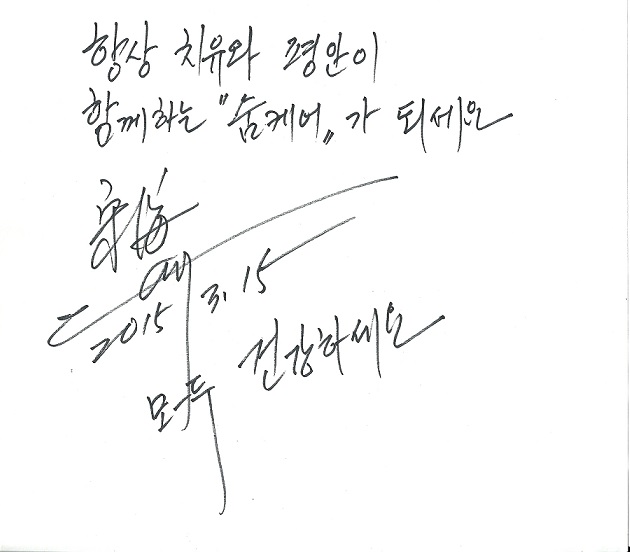 항상 치유와 평안이
함께하는 "숨케어" 가 되세요
宋海
2015. 3. 15
모두 건강하세요